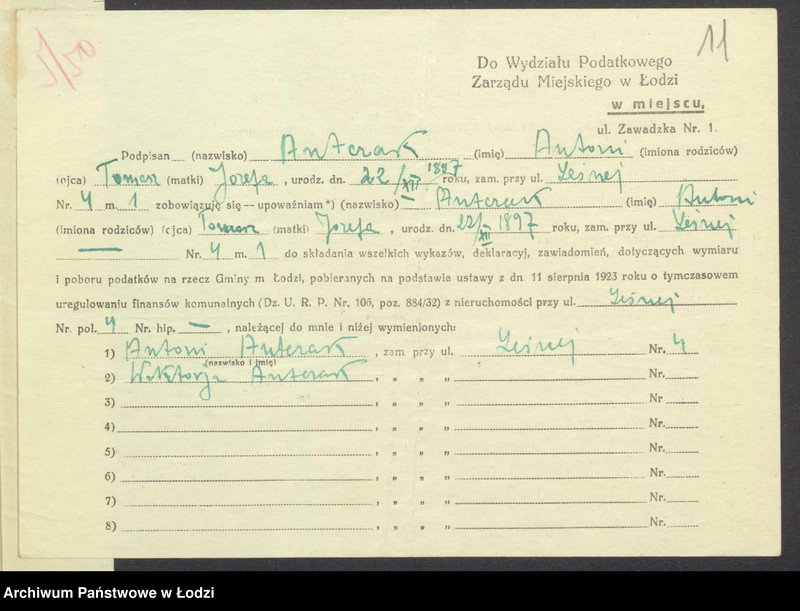 5/50
11
Do Wydziału Podatkowego
Zarządu Miejskiego w Łodzi
w miejscu,
ul. Zawadzka Nr. 1.
Podpisan (nazwisko) Antczak (imię) Antoni (imiona rodziców)
(ojca) Tomasz (matki) Jozefa, urodz. dn. 22/XII 1897 roku, zam. przy ul. Leśnej
Nr. 4 m. 1 zobowiązuję się -- upoważniam *) (nazwisko) — Antczak (imię) Antoni
(imiona rodziców) (ojca) Tomasz (matki) Jozefa, urodz. dn. 22/XII 1897 roku, zam. przy ul. Leśnej
— Nr. 4 m. 1 do składania wszelkich wykazów, deklaracyj, zawiadomień, dotyczących wymiaru
i poboru podatków na rzecz Gminy m Łodzi, pobieranych na podstawie ustawy z dn. 11 sierpnia 1923 roku o tymczasowem
uregulowaniu finansów komunalnych (Dz. U. R. P. Nr. 106, poz. 884/32) z nieruchomości przy ul. Leśnej
Nr. pol. 4 Nr. hip. —, należącej do mnie i niżej wymienionych:
1) Antoni Antczak, zam. przy ul. Leśnej Nr. 4
(nazwisko i imię)
2) Wiktorja Antczak, „ „ „ Nr.
3) , „ „ „ Nr.
4) , „ „ „ Nr.
5) , „ „ „ Nr.
6) , „ „ „ Nr.
7) , „ „ „ Nr.
8) , „ „ „ Nr.
Archiwum Państwowe w Łodzi